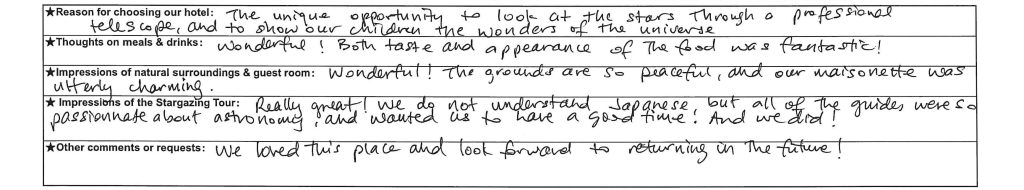 ★Reason for choosing our hotel: The unique opportunity to look at the stars through a professional
telescope, and to show our children the wonders of the universe
★Thoughts on meals & drinks: Wonderful! Both taste and appearance of the food was fantastic!
★Impressions of natural surroundings & guest room: Wonderful! The grounds are so peaceful, and our maisonette was
utterly charming.
★ Impressions of the Stargazing Tour: Really great! We do not understand Japanese, but all of the guides were so
passionnate about astronomy, and wanted us to have a good time! And we did!
★Other comments or requests: We loved this place and look forward to returning in the future!